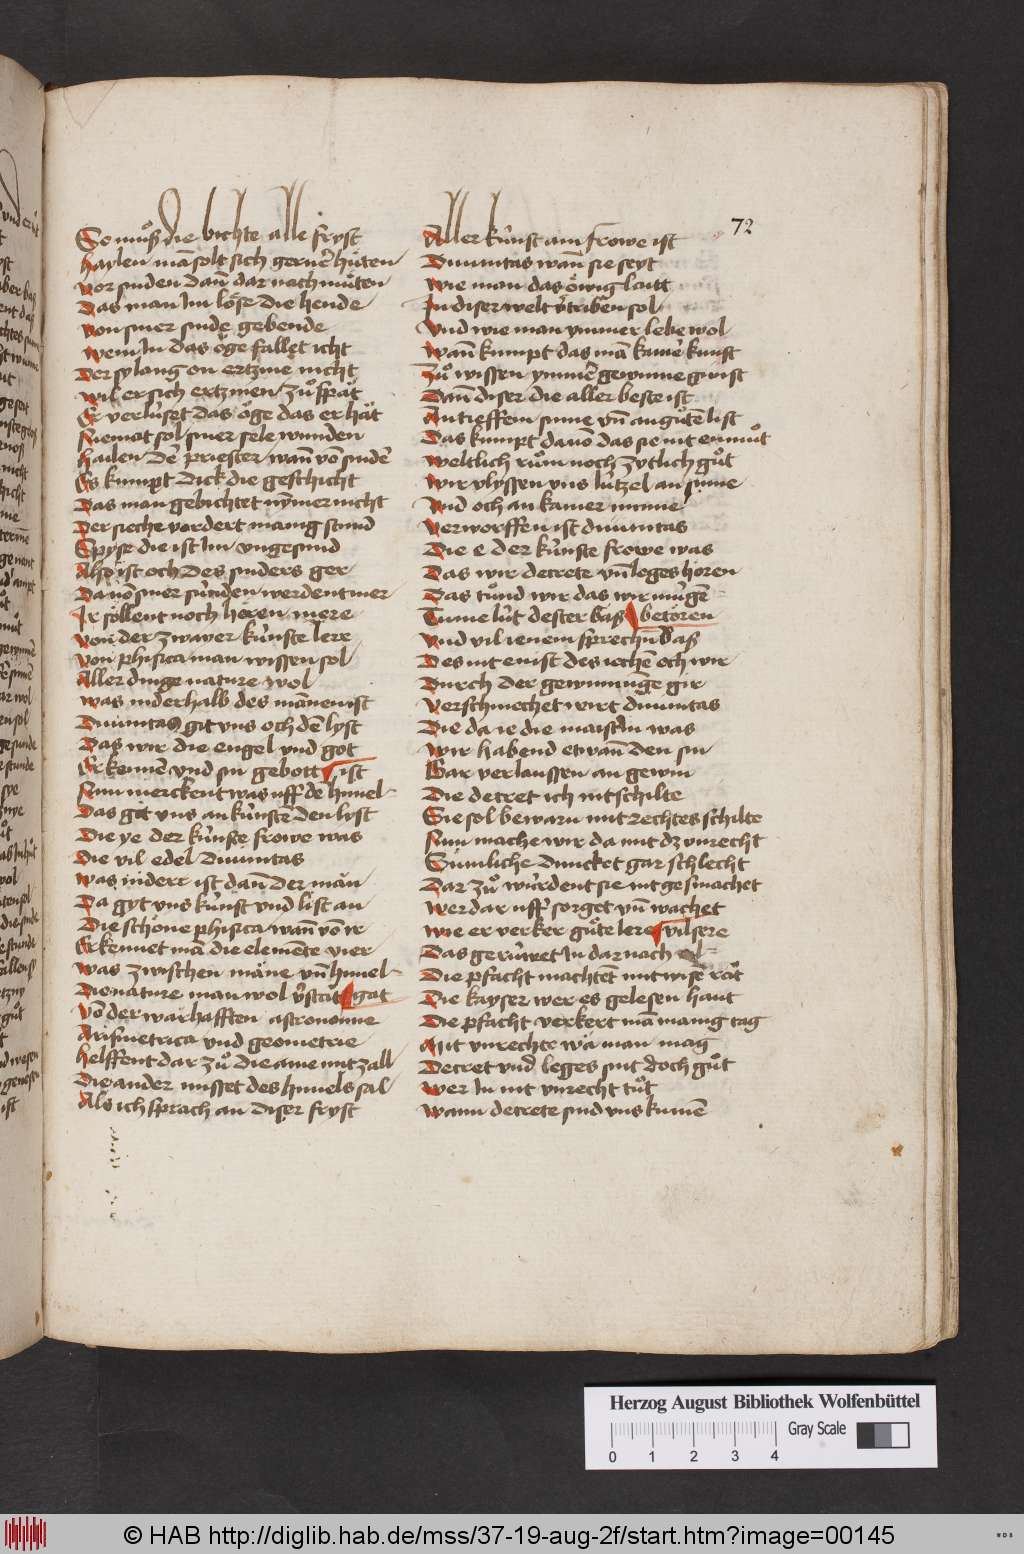 72
So muͦß die bichte alle fryst
haylen mā solt sich gerner̄ huͤten
vor sunden dan̄ dar nach muͤten
das man Im loͤse die hende
von siner sunde gebende
wem In das oͤge fallet icht
der sy lang on ertznie nicht
wil er sich ertznien zuͦ spaͤt
Er verluͤset das oͤge das er haͤt
Niemāt sol siner sele wunden
hailen dē priester wan̄ vō sundē
Es kumpt dick die geschicht
das man gebichtet nÿmer nicht
der sieche vordert manig stund
Spyse die ist Im vngesund
Also ist och des sunders ger
da vō siner sunden werdent mer
Ir soͤllent noch hoͤren mere
von der zwayer kuͤnste lere
von phisica man wissen sol
Aller dinge nature wol
was inderhalb des mānen ist
diuinitas git vns och dē lyst
das wir die engel vnd got
Erkennē vnd sin gebott ist
Nun merckent was uff dē himel
das git vns an kuͤnstē den lyst
die ye der kuͤnste frowe was
die vil edel diuinitas
was inderr ist dan̄ der māͤn
da gyt vns kuͤnst vnd list an
die schoͤne phisica wan̄ vō ir
Erkennet mā die elemēte vier
was zwischen māͤne vn̄ himel
die nature man wol v̄stāt gat
vō der warhafften astronomie
Arismetrica vnd geometrie
helffent dar zuͦ die aine mit zall
die ander misset des himels sal
Als ich sprach an diser fryst
Aller kuͤnst ain frowe ist
diuinitas wan̄ sie seyt
wie man das oͤwig laitt
In diser welt v̄triben sol
vnd wie man ymmer lebe wol
wan̄ kumpt das mā kainer̄ kunst
zuͦ wissen ymmer̄ gewinne gunst
dan̄ diser die aller beste ist
An tieffem sinne vn̄ an guͤtē list
das kumpt da vō das sie nit enmuͦt
weltlich ruͦm noch zytlich guͦt
wir vlyssen vns lutzel an sinne
vnd och an kainer minne
verworffen ist diuinitas
die e der kuͤnste frowe was
das wir decrete vn̄ leges hoͤren
das tuͦnd wir das wir muͤgē
Tume luͤt dester baß betoͤren
vnd vil ienem sprechn̄ das
des nit enist des iechē och wir
durch der gewinnūge gir
verschmechet wirt diuinitas
die da ie die maistrin was
wir habend etwan̄ den sin
Gar verlaussen an gewin
die decret ich nit schilte
Sie sol bewarn mit rechtes schilte
Nun mache wir da mit dz vnrecht
Sumliche duncket gar schlecht
dar zuͦ wuͤrdent sie nit gesmachet
wer dar uff sorget vn̄ wachet
wie er verker guͤte lere vil sere
das geruͤwet In dar nach
die pfacht machtet mit wiser̄ raͤt
die kayser wer es gelesen haut
die pfacht verkert mā manig tag
Mit vnrechte wa man mag
decret vnd leges sint doch guͦt
wer In nit vnrecht tuͦt
wann decrete sind vns kumē
Herzog August Bibliothek Wolfenbüttel
Gray Scale
0 1 2 3 4
© HAB http://diglib.hab.de/mss/37-19-aug-2f/start.htm?image=00145